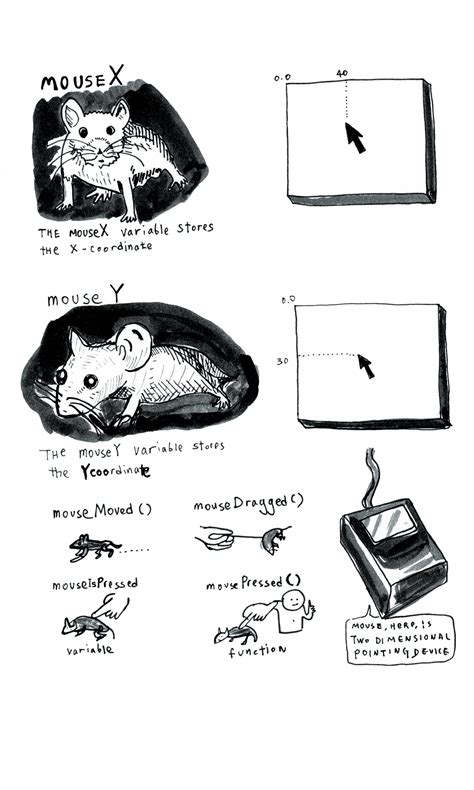 mouseX
0.0
40
THE mouseX variable stores
the X-coordinate
mouse Y
0.0
30
THE mouseY variable stores
the Ycoordinate
mouseMoved()
mouseDragged()
mouseisPressed
variable
mousePressed()
function
MOUSE, HERE, IS
TWO DIMENSIONAL
POINTING DEVICE